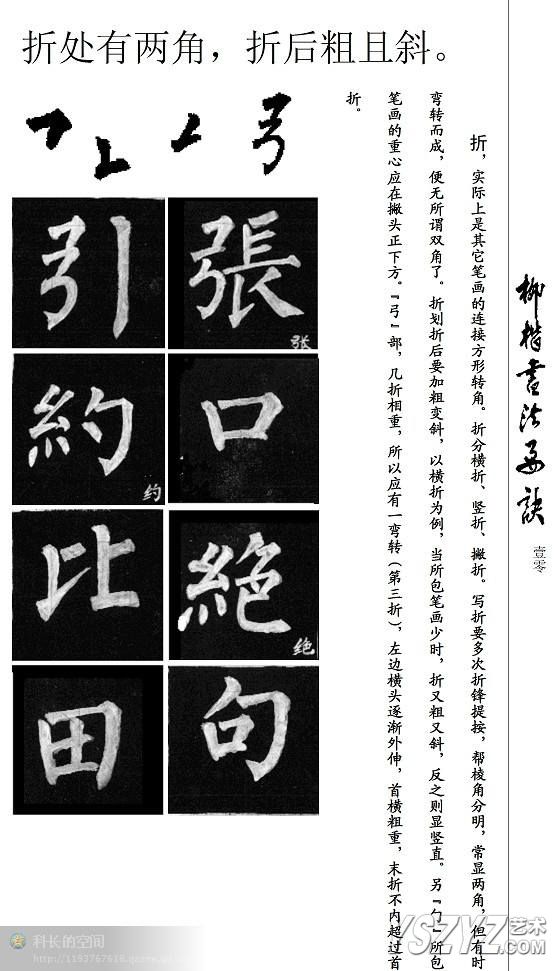 折处有两角，折后粗且斜。
柳楷书法要诀
壹零
折，实际上是其它笔画的连接方形转角。折分横折、竖折、撇折。写折要多次折锋提按，帮棱角分明，常显两角，但有时
弯转而成，便无所谓双角了。折划折后要加粗变斜，以横折为例，当所包笔画少时，折又粗又斜，反之则显竖直。另『勹』所包
笔画的重心应在撇头正下方。『弓』部，几折相重，所以应有一弯转（第三折），左边横头逐渐外伸，首横粗重，末折不内超过首
折。
弓
張
张
引
口
約
约
絕
绝
比
句
田
科长的空间
YSZYZ艺术